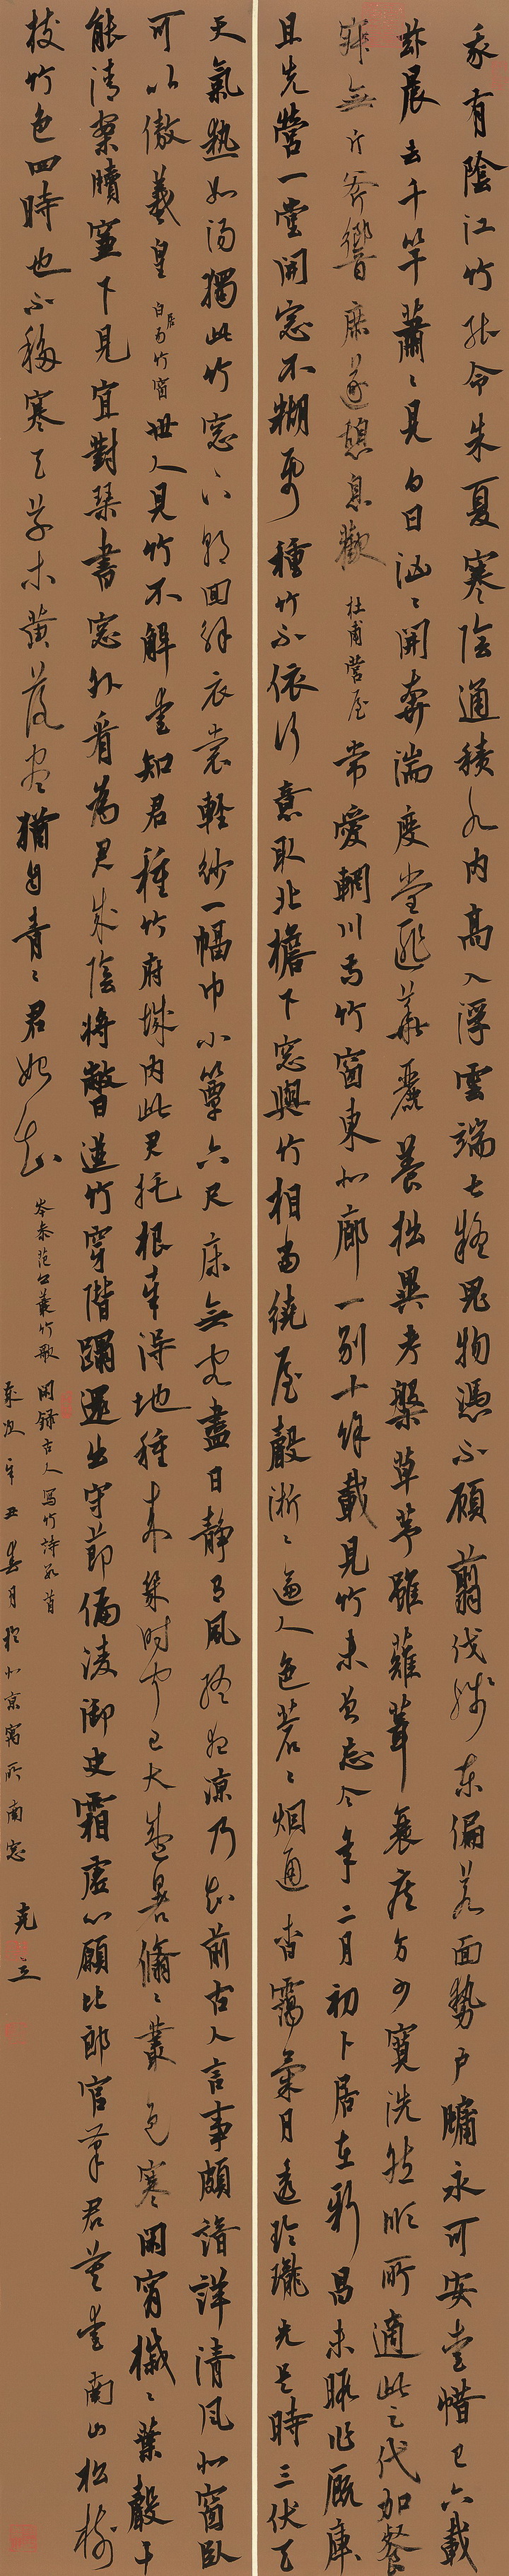 我有陰江竹能令朱夏寒陰通積水內高入浮雲端甚疑鬼物憑不顧翦伐殘東偏若面勢戶牖永可安愛惜已六載
茲晨去千竿蕭々見白日洶々開奔湍度堂匪華麗養拙異考槃草茅雖薙葺衰疾方少寬洗然順所適此足代加餐
寂無斤斧響庶遂憩息歡 杜甫營屋 常愛輞川寺竹窗東北廊一別十餘載見竹未曾忘今年二月初卜居在新昌未暇作廄庫
且先營一堂開窗不糊紙種竹不依行意取北檐下窗與竹相當繞屋聲淅々逼人色蒼々煙通杳靄氣月透玲瓏光是時三伏天
天氣熱如湯獨此竹窗下朝回解衣裳輕紗一幅巾小簟六尺床無客盡日靜有風終夜涼乃知前古人言事頗諳詳清風北窗臥
可以傲羲皇 白居易竹窗 世人見竹不解愛知君種竹府城內此君托根幸得地種來幾時聞已大盛暑翛々叢色寒閑宵槭々葉聲干
能清案牘簾下見宜對琴書窗外看為君成陰將蔽日迸竹穿階踏還出守節偏凌御史霜虛心願比郎官筆君莫愛南山松樹
枝竹色四時也不移寒天草木黃落盡猶自青々君始知 岑參范公叢竹歌 閑錄古人寫竹詩數首
歲次辛丑春月於北京寓所南窗 堯立